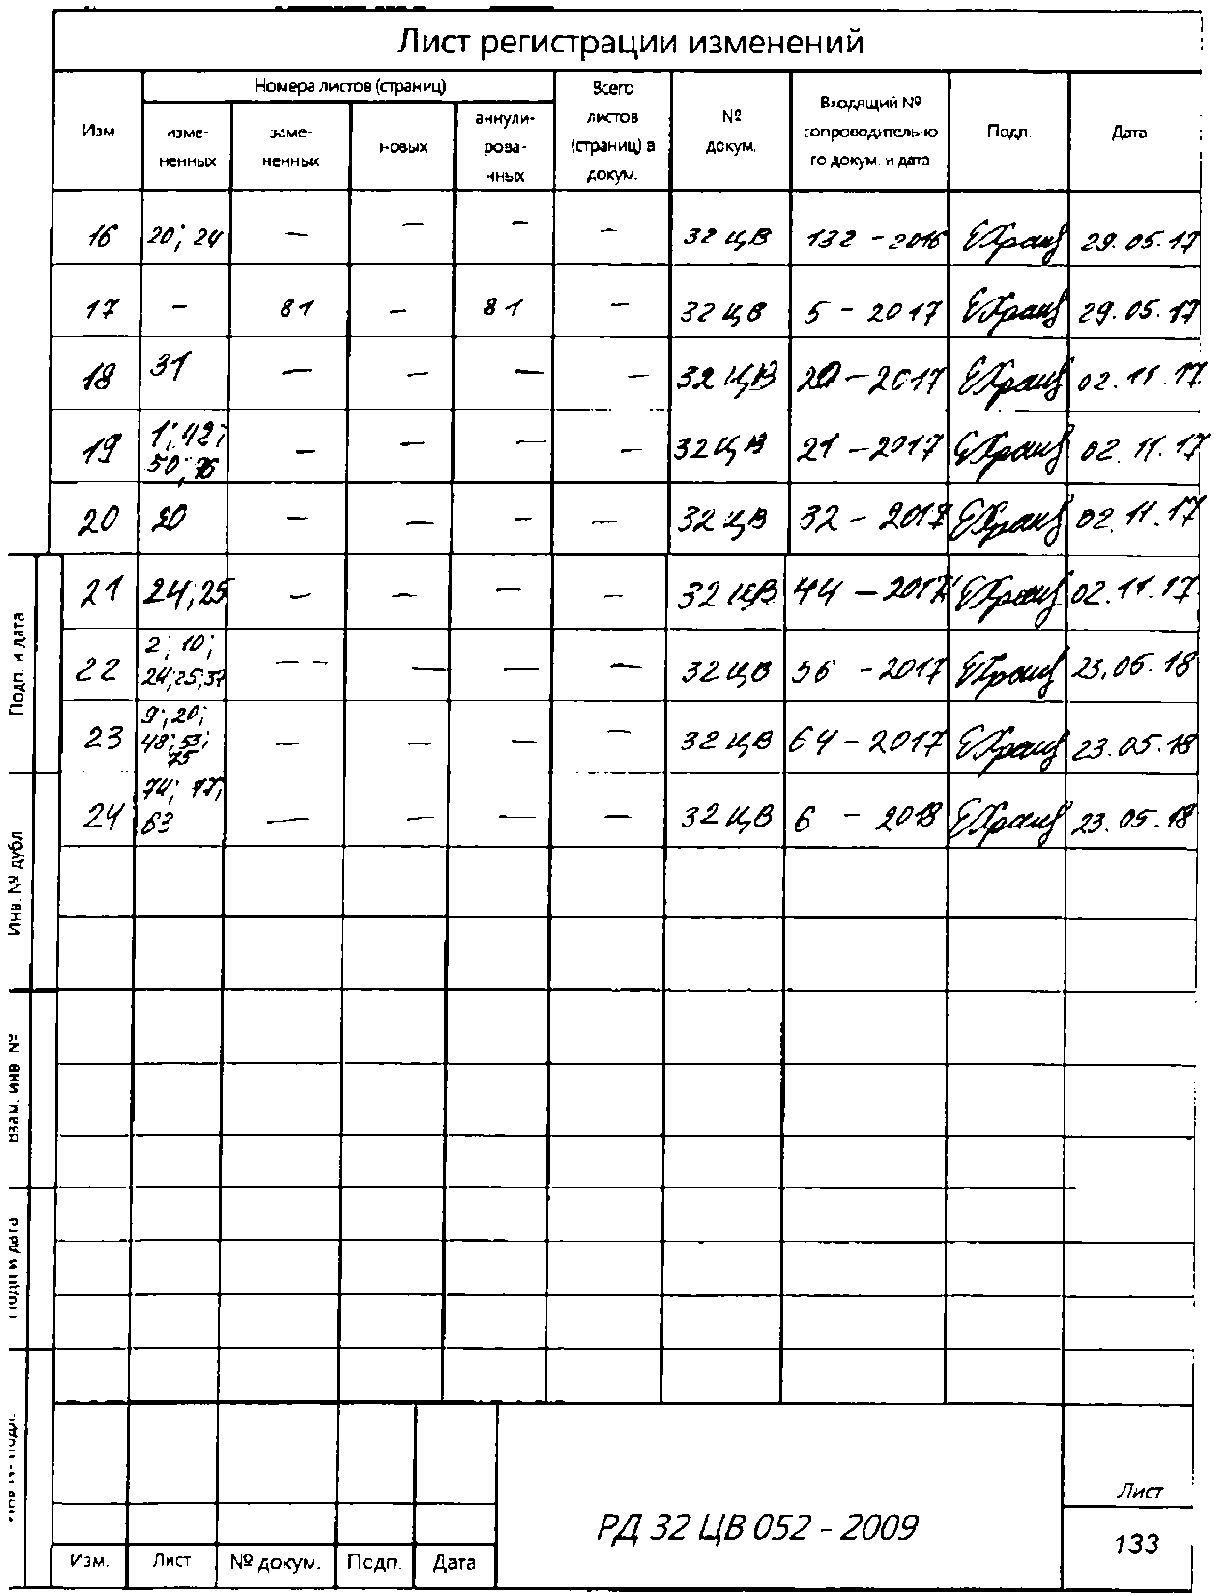 Лист регистрации изменений
Изм
Номера листов (страниц)
изме-
ненных
заме-
ненных
новых
аннули-
рова-
нных
Всего
листов
(страниц) в
докум.
№
докум.
Входящий №
сопроводительно
го докум. и дата
Подп.
Дата
16 20; 24 — — — — 32 ЦВ 132 - 2016 29.05.17
17 - 81 - 81 — 32 ЦВ 5 - 2017 29.05.17
18 31 — — — — 32 ЦВ 20 - 2017 02.11.17
19 1; 42; 50; 76 — — — — 32 ЦВ 21 - 2017 02.11.17
20 20 — — — — 32 ЦВ 32 - 2017 02.11.17
21 24; 25 — — — — 32 ЦВ 44 - 2017 02.11.17
22 2; 10; 24; 25; 37 — — — — — 32 ЦВ 56 - 2017 23.05.18
23 9; 20; 48; 53; 75 — — — — 32 ЦВ 64 - 2017 23.05.18
24 74; 77; 63 — — — — 32 ЦВ 6 - 2018 23.05.18
Подп. и дата
Инв. № дубл
Взам. инв. №
Подп и дата
Изм. Лист № докум. Подп. Дата
РД 32 ЦВ 052 - 2009
Лист
133